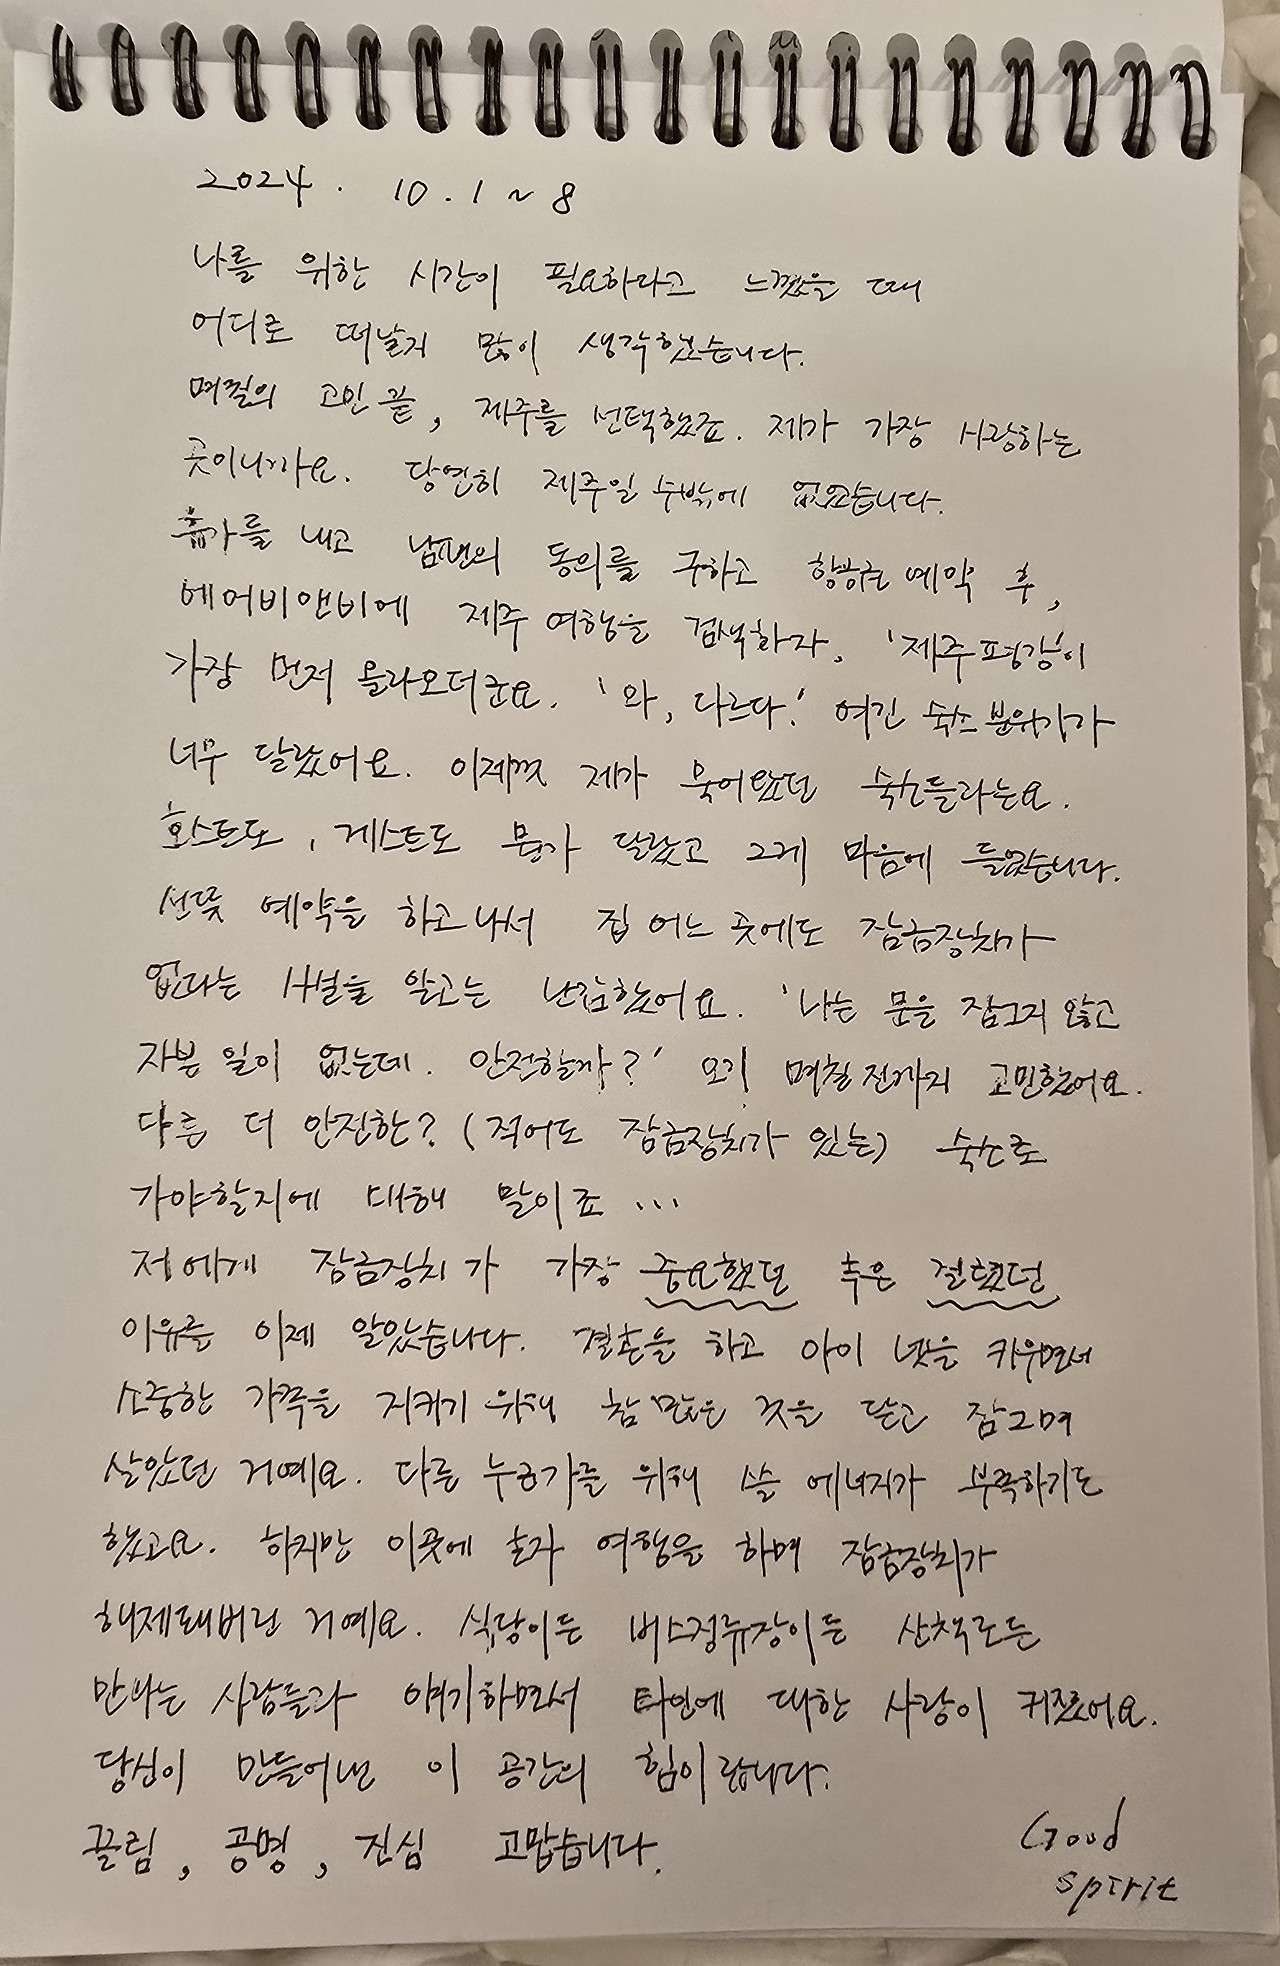 2024. 10. 1 ~ 8
나를 위한 시간이 필요하다고 느꼈을 때
어디로 떠날지 많이 생각했습니다.
며칠의 고민 끝, 제주를 선택했죠. 제가 가장 사랑하는
곳이니까요. 당연히 제주일 수밖에 없었습니다.
휴가를 내고 남편의 동의를 구하고 항공권 예약 후,
에어비앤비에 제주 여행을 검색하자, '제주평강'이
가장 먼저 올라오더군요. '와, 다르다.' 여긴 숙소 분위기가
너무 달랐어요. 이제껏 제가 묵어왔던 숙소들과는요.
호스트도, 게스트도 뭔가 달랐고 그게 마음에 들었습니다.
선뜻 예약을 하고나서 집 어느 곳에도 잠금장치가
없다는 사실을 알고는 난감했어요. '나는 문을 잠그지 않고
자본 일이 없는데. 안전할까?' 오기 며칠전까지 고민했어요.
다른 더 안전한? (적어도 잠금장치가 있는) 숙소로
가야할지에 대해 말이죠...
저에게 잠금장치가 가장 중요했던 혹은 절실했던
이유를 이제 알았습니다. 결혼을 하고 아이 넷을 키우면서
소중한 가족을 지키기 위해 참 많은 것을 닫고 잠그며
살았던 거예요. 다른 누군가를 위해 쓸 에너지가 부족하기도
했고요. 하지만 이곳에 혼자 여행을 하며 잠금장치가
해제돼버린 거예요. 식당이든 버스정류장이든 산책로든
만나는 사람들과 얘기하면서 타인에 대한 사랑이 커졌어요.
당신이 만들어낸 이 공간의 힘이랍니다.
끌림, 공명, 진심 고맙습니다.
Good
spirit